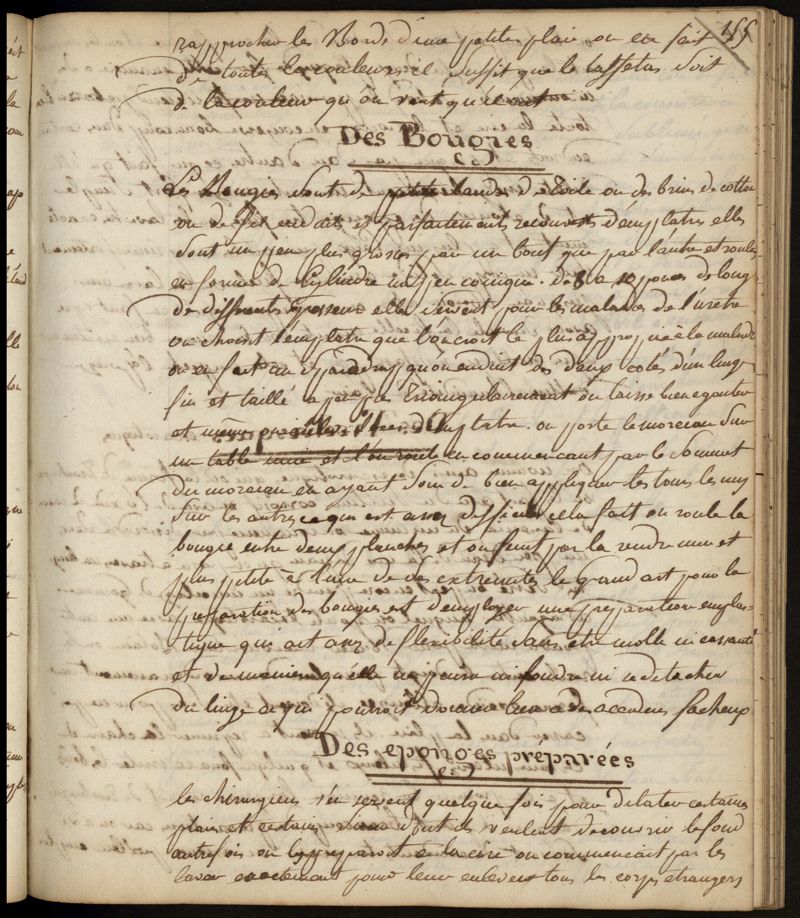 155
rapprocher les Bords d'une petite plaie on en fait
de toutes les couleurs il suffit que le taffetas soit
de la couleur qu'on veut qu'il
Des Bougies
Les Bougies sont de petites bandes de toile ou des brins de cotton
ou de fil enduits et parfaitement recouverts d'emplatre elles
sont un peu plus grosses par un bout que par l'autre et roulés
en forme de Cylindre un peu conique. de 8 a 10 pouces de long
de differents grosseur elles servent pour les maladies de l'uretre
on choisit l'emplatre que l'on croit le plus approprié à la maladie
on en fait un sparadrap qu'on enduit des deux cotés d'un linge
fin et taillé a peu pres triangulairement on laisse bien egouter
et d'emplatre. on porte le morceau sur
un table unie et l'on roule en commencant par le sommet
du morceau en ayant soin de bien appliquer les tours les uns
sur les autres ce qui est assez difficile cela fait on roule la
bougie entre deux planches et on finit par la rendre unie et
plus petite à l'une de des extremités le grand art pour la
preparation des bougies est d'employer une preparation emplas=
tique qui ait assez de flexibilité sans etre molle ni cassante
et de maniere qu'elle ne puisse ni fondre ni se detacher
du linge ce qui pourroit donner lieu a des accidens facheux
Des eponges préparées
les chirurgiens s'en servent quelque fois pour dilater certaines
plaies et certains sinus dont ils veulent decouvrir le fond
autrefois on les preparoit à la cire on commencait par les
laver exactement pour leur enlever tous les corps etrangers